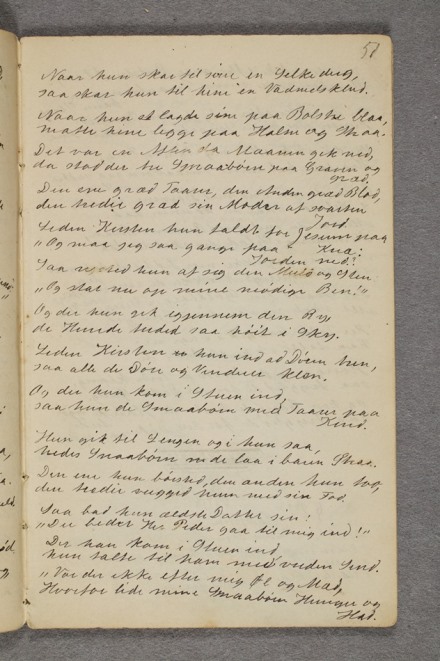 57
Naar hun skar til sine en Silke
saa skar hun til hine en Vadmels
Naar hun lagde sine paa Bolstre blaa,
maatte hine ligge paa Halm og Straa.
Det var en Aften da Maanen gik ned,
da stod der tre Smaabørn paa Graven og
græd.
Den ene græd Taarer, den Anden græd Blod,
den tredie græd sin Moder af sorten
Jord
Liden Kirsten hun faldt for Jesum paa
Knæ:
"Og maa jeg saa gange paa
Jorden ned?
Saa hun af sig den Muld og Sten
"Og stat nu op mine mødige Ben!"
Og der hun gik igjennem den By,
de Hunde tuded saa høit i Sky.
Liden Kirsten hun ind ad Døren
saa alle de Døre og Vinduer
Og der hun kom i Stuen ind,
saa hun de Smaabørn med Taarer paa
Kind.
Hun gik til Sengen og i hun saa,
hendes Smaabørn de laa i baren Straa.
Den ene hun børsted, den anden hun
den tredie hun med sin Fod.
Saa bad hun ældste Datter sin:
"Du beder Hr. Peder gaa til mig ind!"
Der han kom i Stuen ind,
hun talte til ham med vreden Sind.
"Var der ikke efter mig Øl og Mad,
Hvorfor lide mine Smaabørn Hunger og
Had.